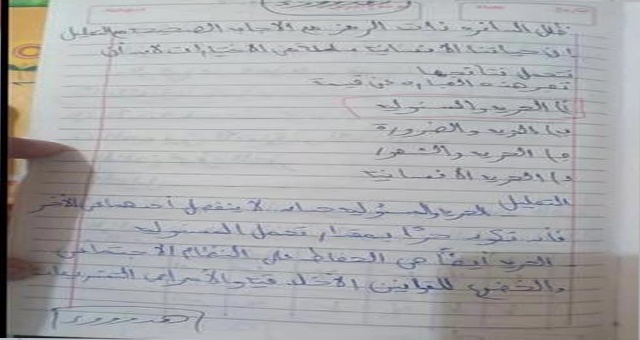 ظلل الدائرة ذات الرمز مع الإجابة الصحيحة مع التعليل
إن حياتنا الإنسانية سلسلة من الاختيارات لابد أن
نتحمل نتائجها
تعبر هذه العبارة عن قيمة
أ) الحرية والمسئولية
ب) الحرية والضرورة
ج) الحرية والشعور
د) الحرية الإنسانية
التعليل الحرية والمسئولية لا ينفصل أحدهما عن الآخر
فأنت تكون حرًا بمقدار تحمل المسئولية
الحرية أيضاً هي الحفاظ على النظام الاجتماعي
والخضوع للقوانين الأخلاقية والأعراف والتشريعات